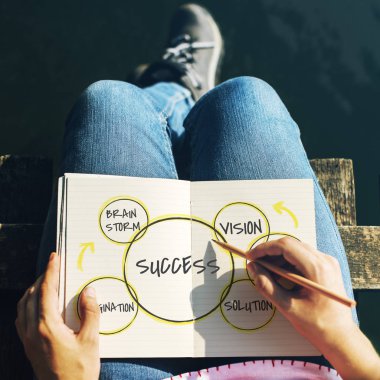 BRAIN
STORM
VISION
SUCCESS
GINATION
SOLUTION